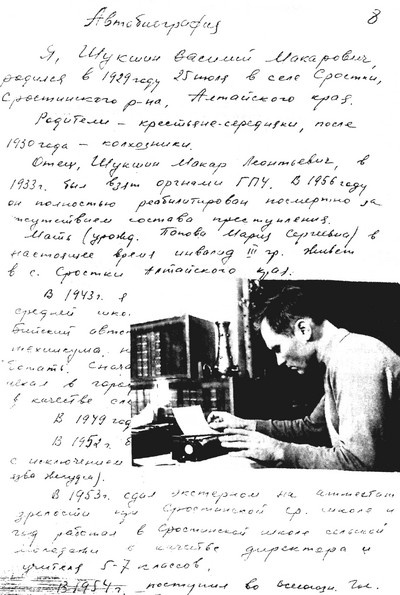 Автобиография
8
Я, Шукшин Василий Макарович,
родился в 1929 году 25 июля в селе Сростки,
Сростинского р-на, Алтайского края.
Родители – крестьяне-середняки, после
1930 года – колхозники.
Отец, Шукшин Макар Леонтьевич, в
1933 г. был взят органами ГПУ. В 1956 году
он полностью реабилитирован посмертно за
отсутствием состава преступления.
Мать (урожд. Попова Мария Сергеевна) в
настоящее время инвалид III гр. Живёт
в с. Сростки Алтайского края.
В 1943 г. я
средней шко
Бийский авто
техникума, н
ботать. Снача
в качестве сле
В 1949 год
В 1952 г. б
с исключением
язва желудка).
В 1953 г. сдал экстерном на аттестат
зрелости при Сростинской ср. школе и
год работал в Сростинской школе сельской
молодёжи в качестве директора и
учителя 5-7 классов.
В 1954 поступил во Всесоюзн. Гос.